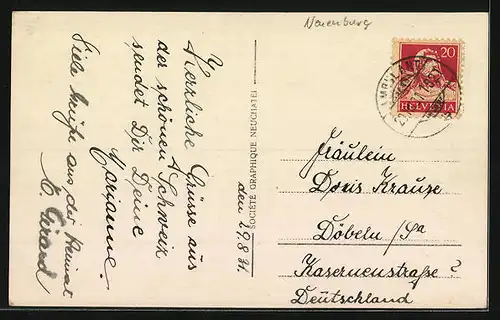 Neuenburg
Herzliche Grüsse aus
der schönen Schweiz
sendet Dir Deine
Marianne.
Viele Grüße aus der Heimat
E. Girard
den 29.8.31.
SOCIÉTÉ GRAPHIQUE NEUCHATEL
20
HELVETIA
Fräulein
Doris Krause
Döbeln /Sa
Kasernenstraße ?
Deutschland